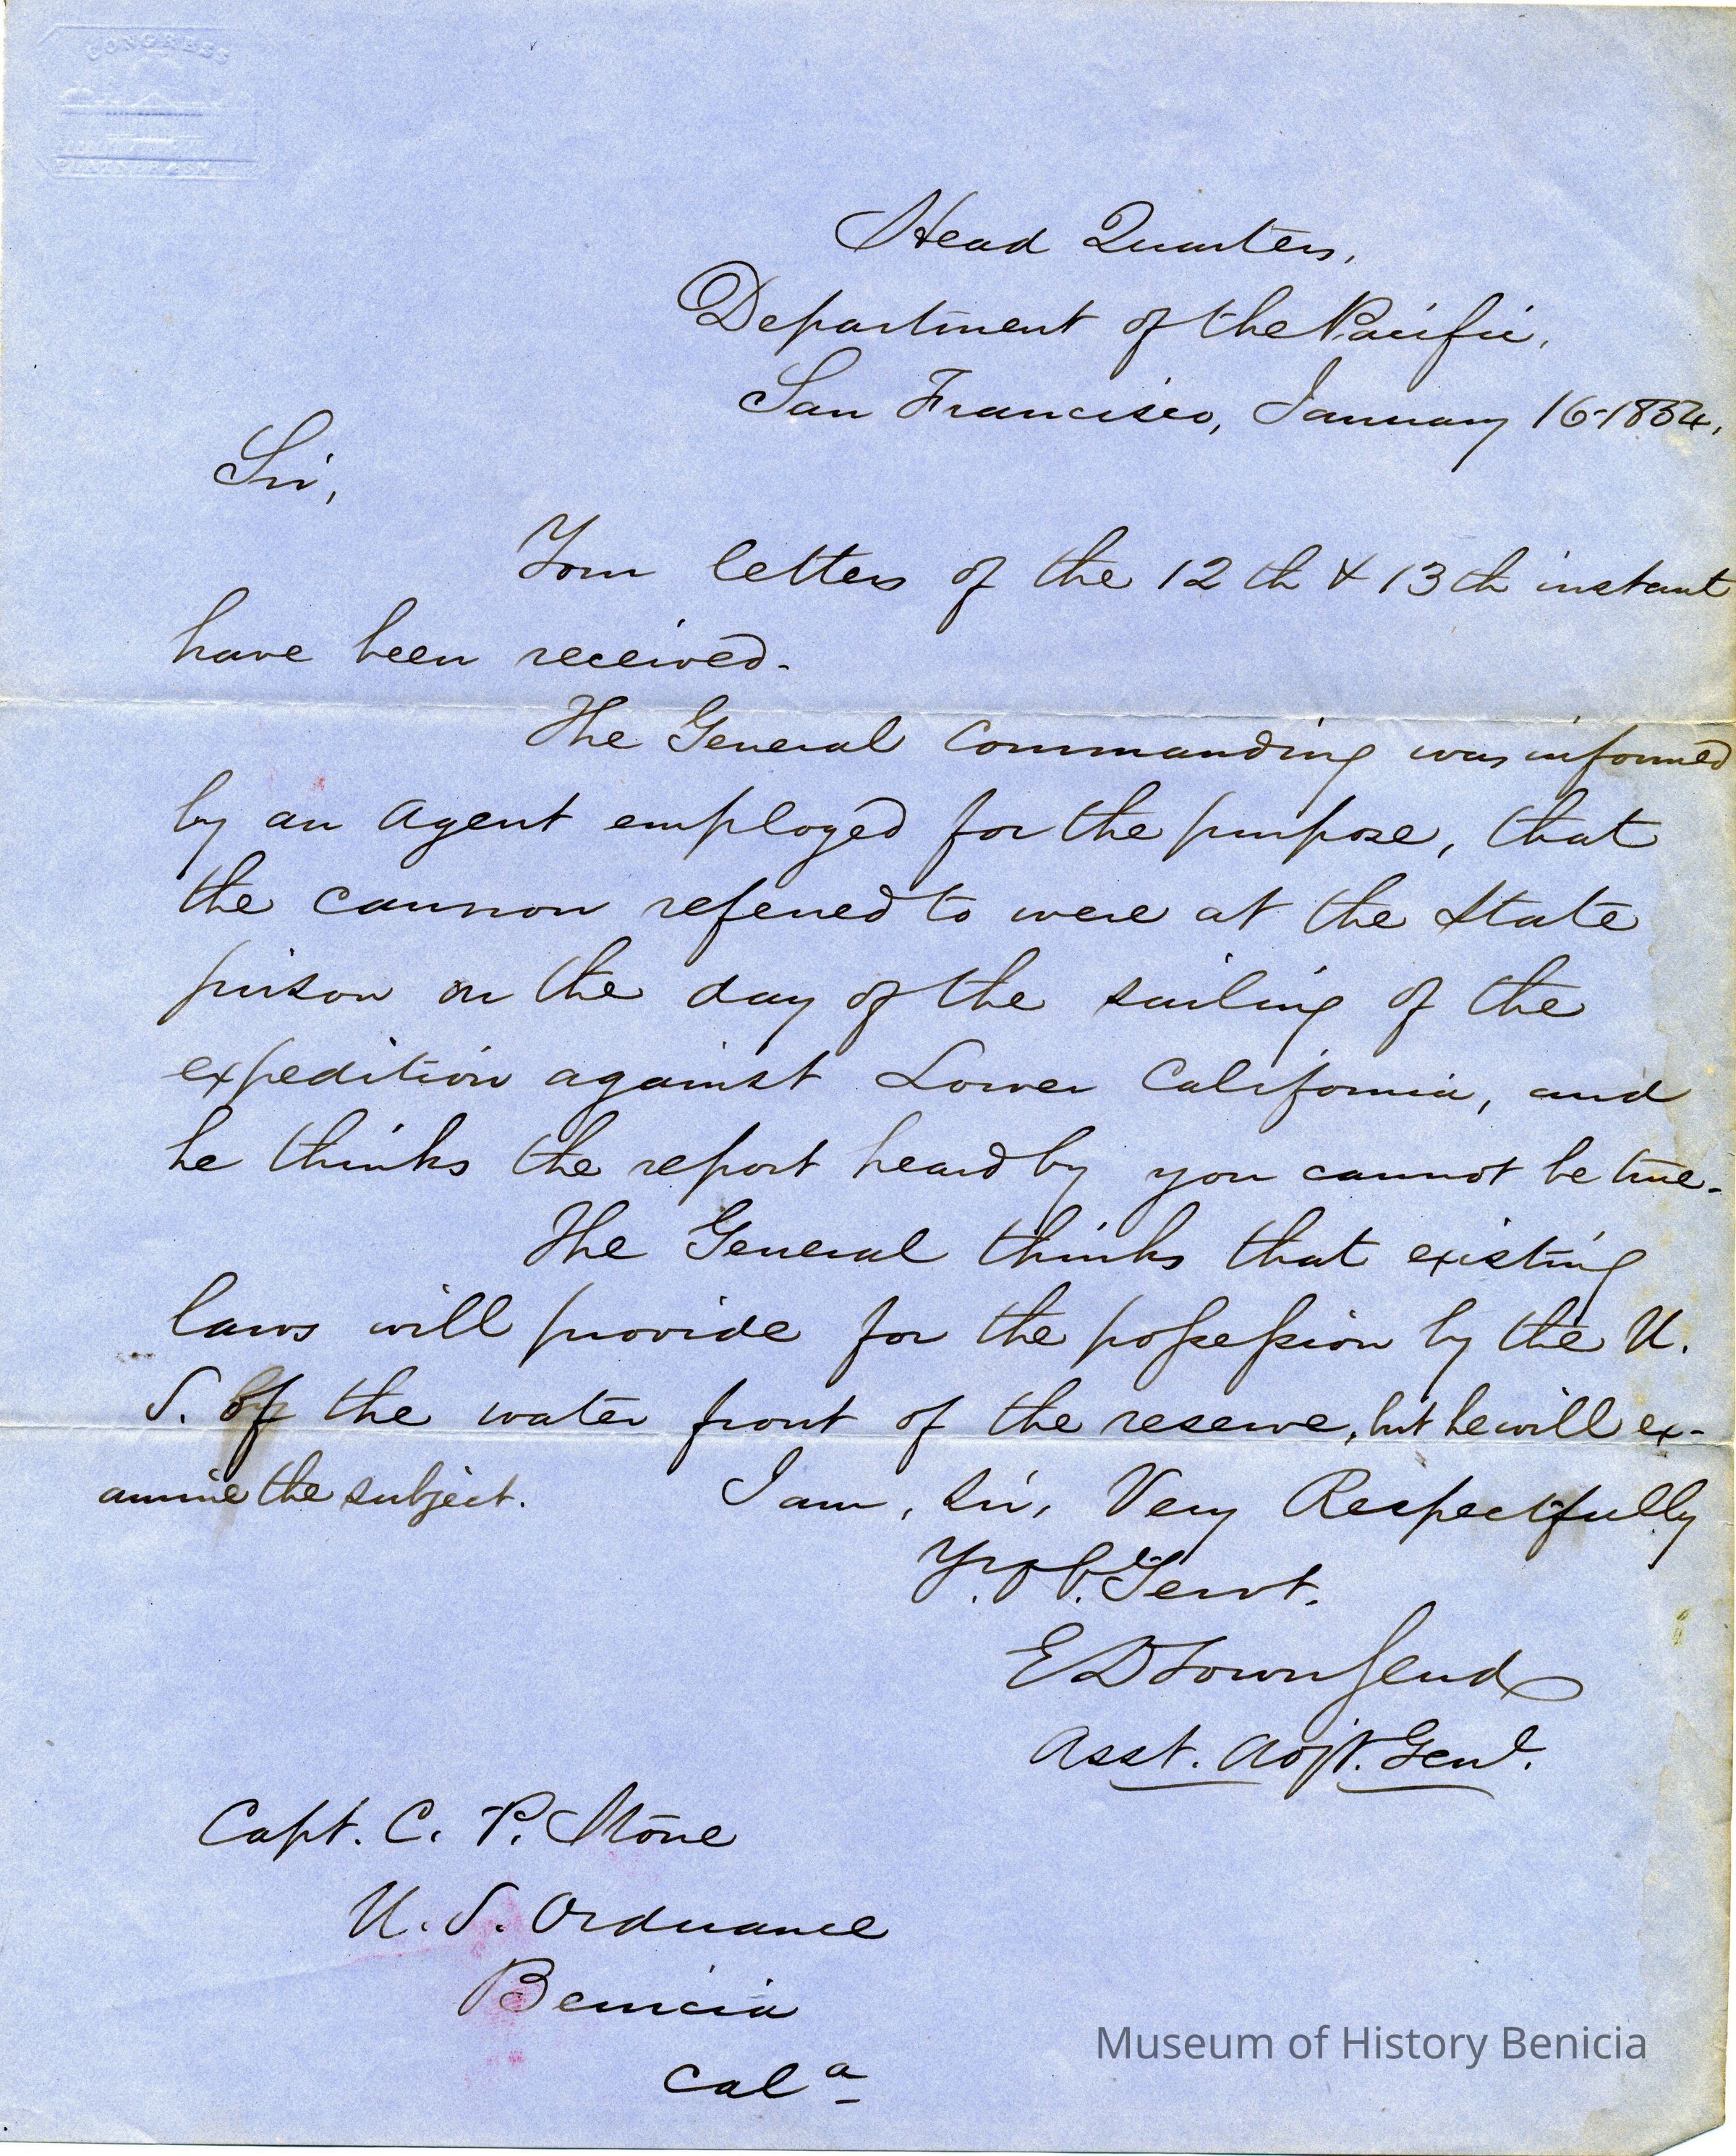 CONGRESS
Head Quarters,
Department of the Pacific,
San Francisco, January 16-1854,
Sir,
Your letters of the 12th & 13th instant
have been received.
The General Commanding was informed
by an Agent employed for the purpose, that
the cannon referred to were at the State
prison on the day of the sailing of the
expedition against Lower California, and
he thinks the report heard by you cannot be true.
The General thinks that existing
laws will provide for the possession by the U.
S. of the water front of the reserve, but he will ex-
amine the subject. I am, Sir, Very Respectfully
Yr. Ob. Servt.
E D Townsend
Asst. Adjt. Genl.
Capt. C. P. Stone
U. S. Ordnance
Benicia
Cala
Museum of History Benicia